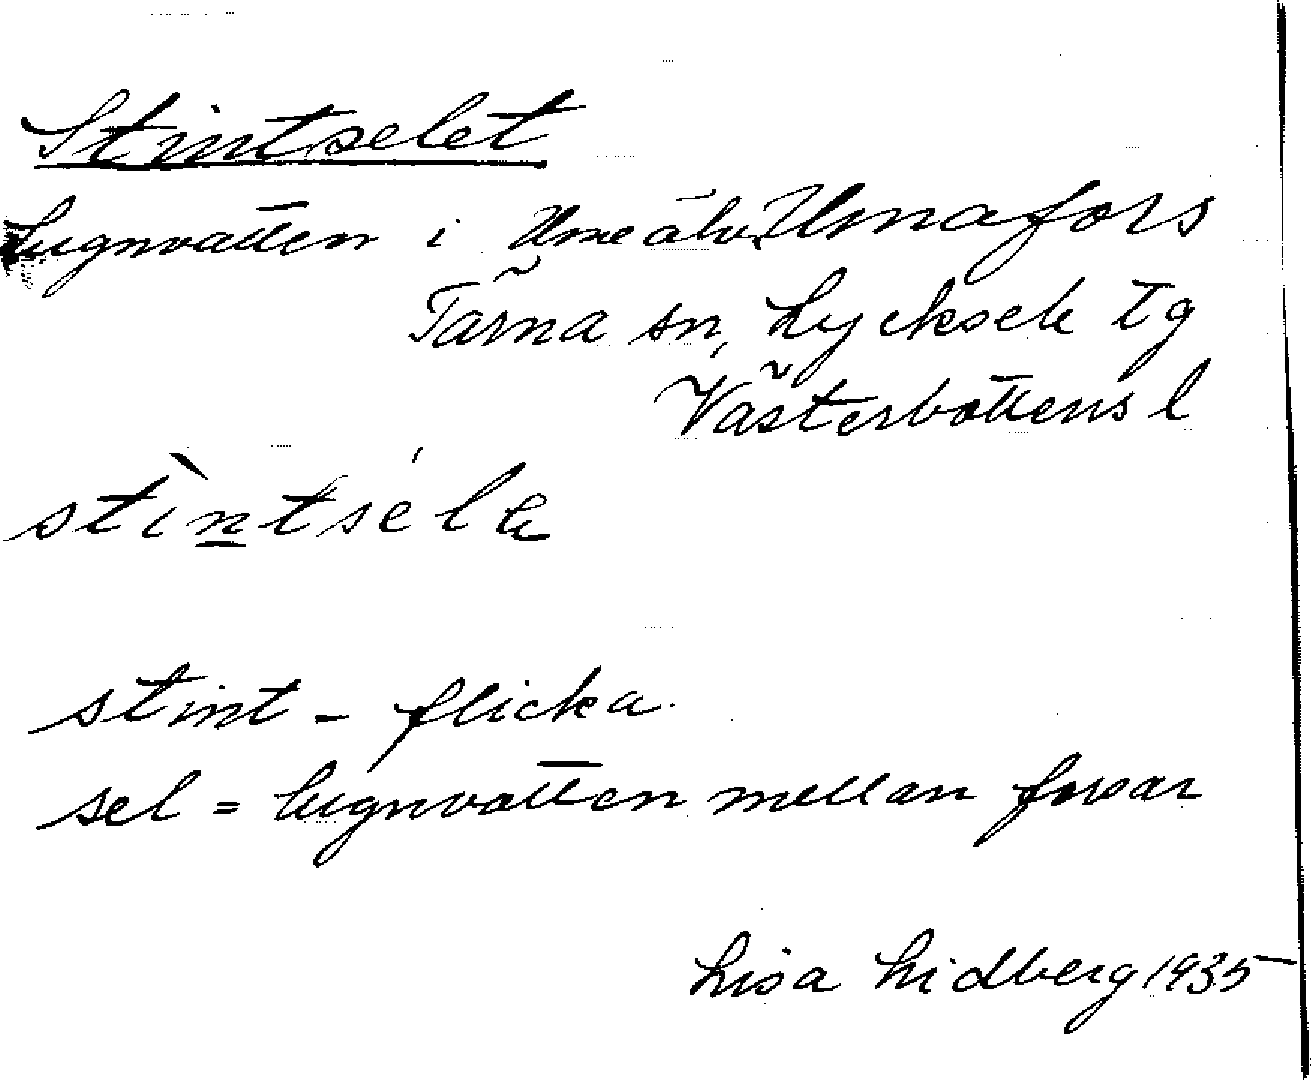 Stintselet
Lugnvatten i Umeälv. Umafors
Tärna sn, Lycksele tg
Västerbottens l
stìntséle
stint - flicka
sel = lugnvatten mellan forsar
Lisa Lidberg 1935